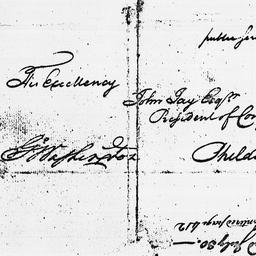 public ser
His Excellency
John Jay Esqr.
President of Con
G. Washington
Philad
July 30.